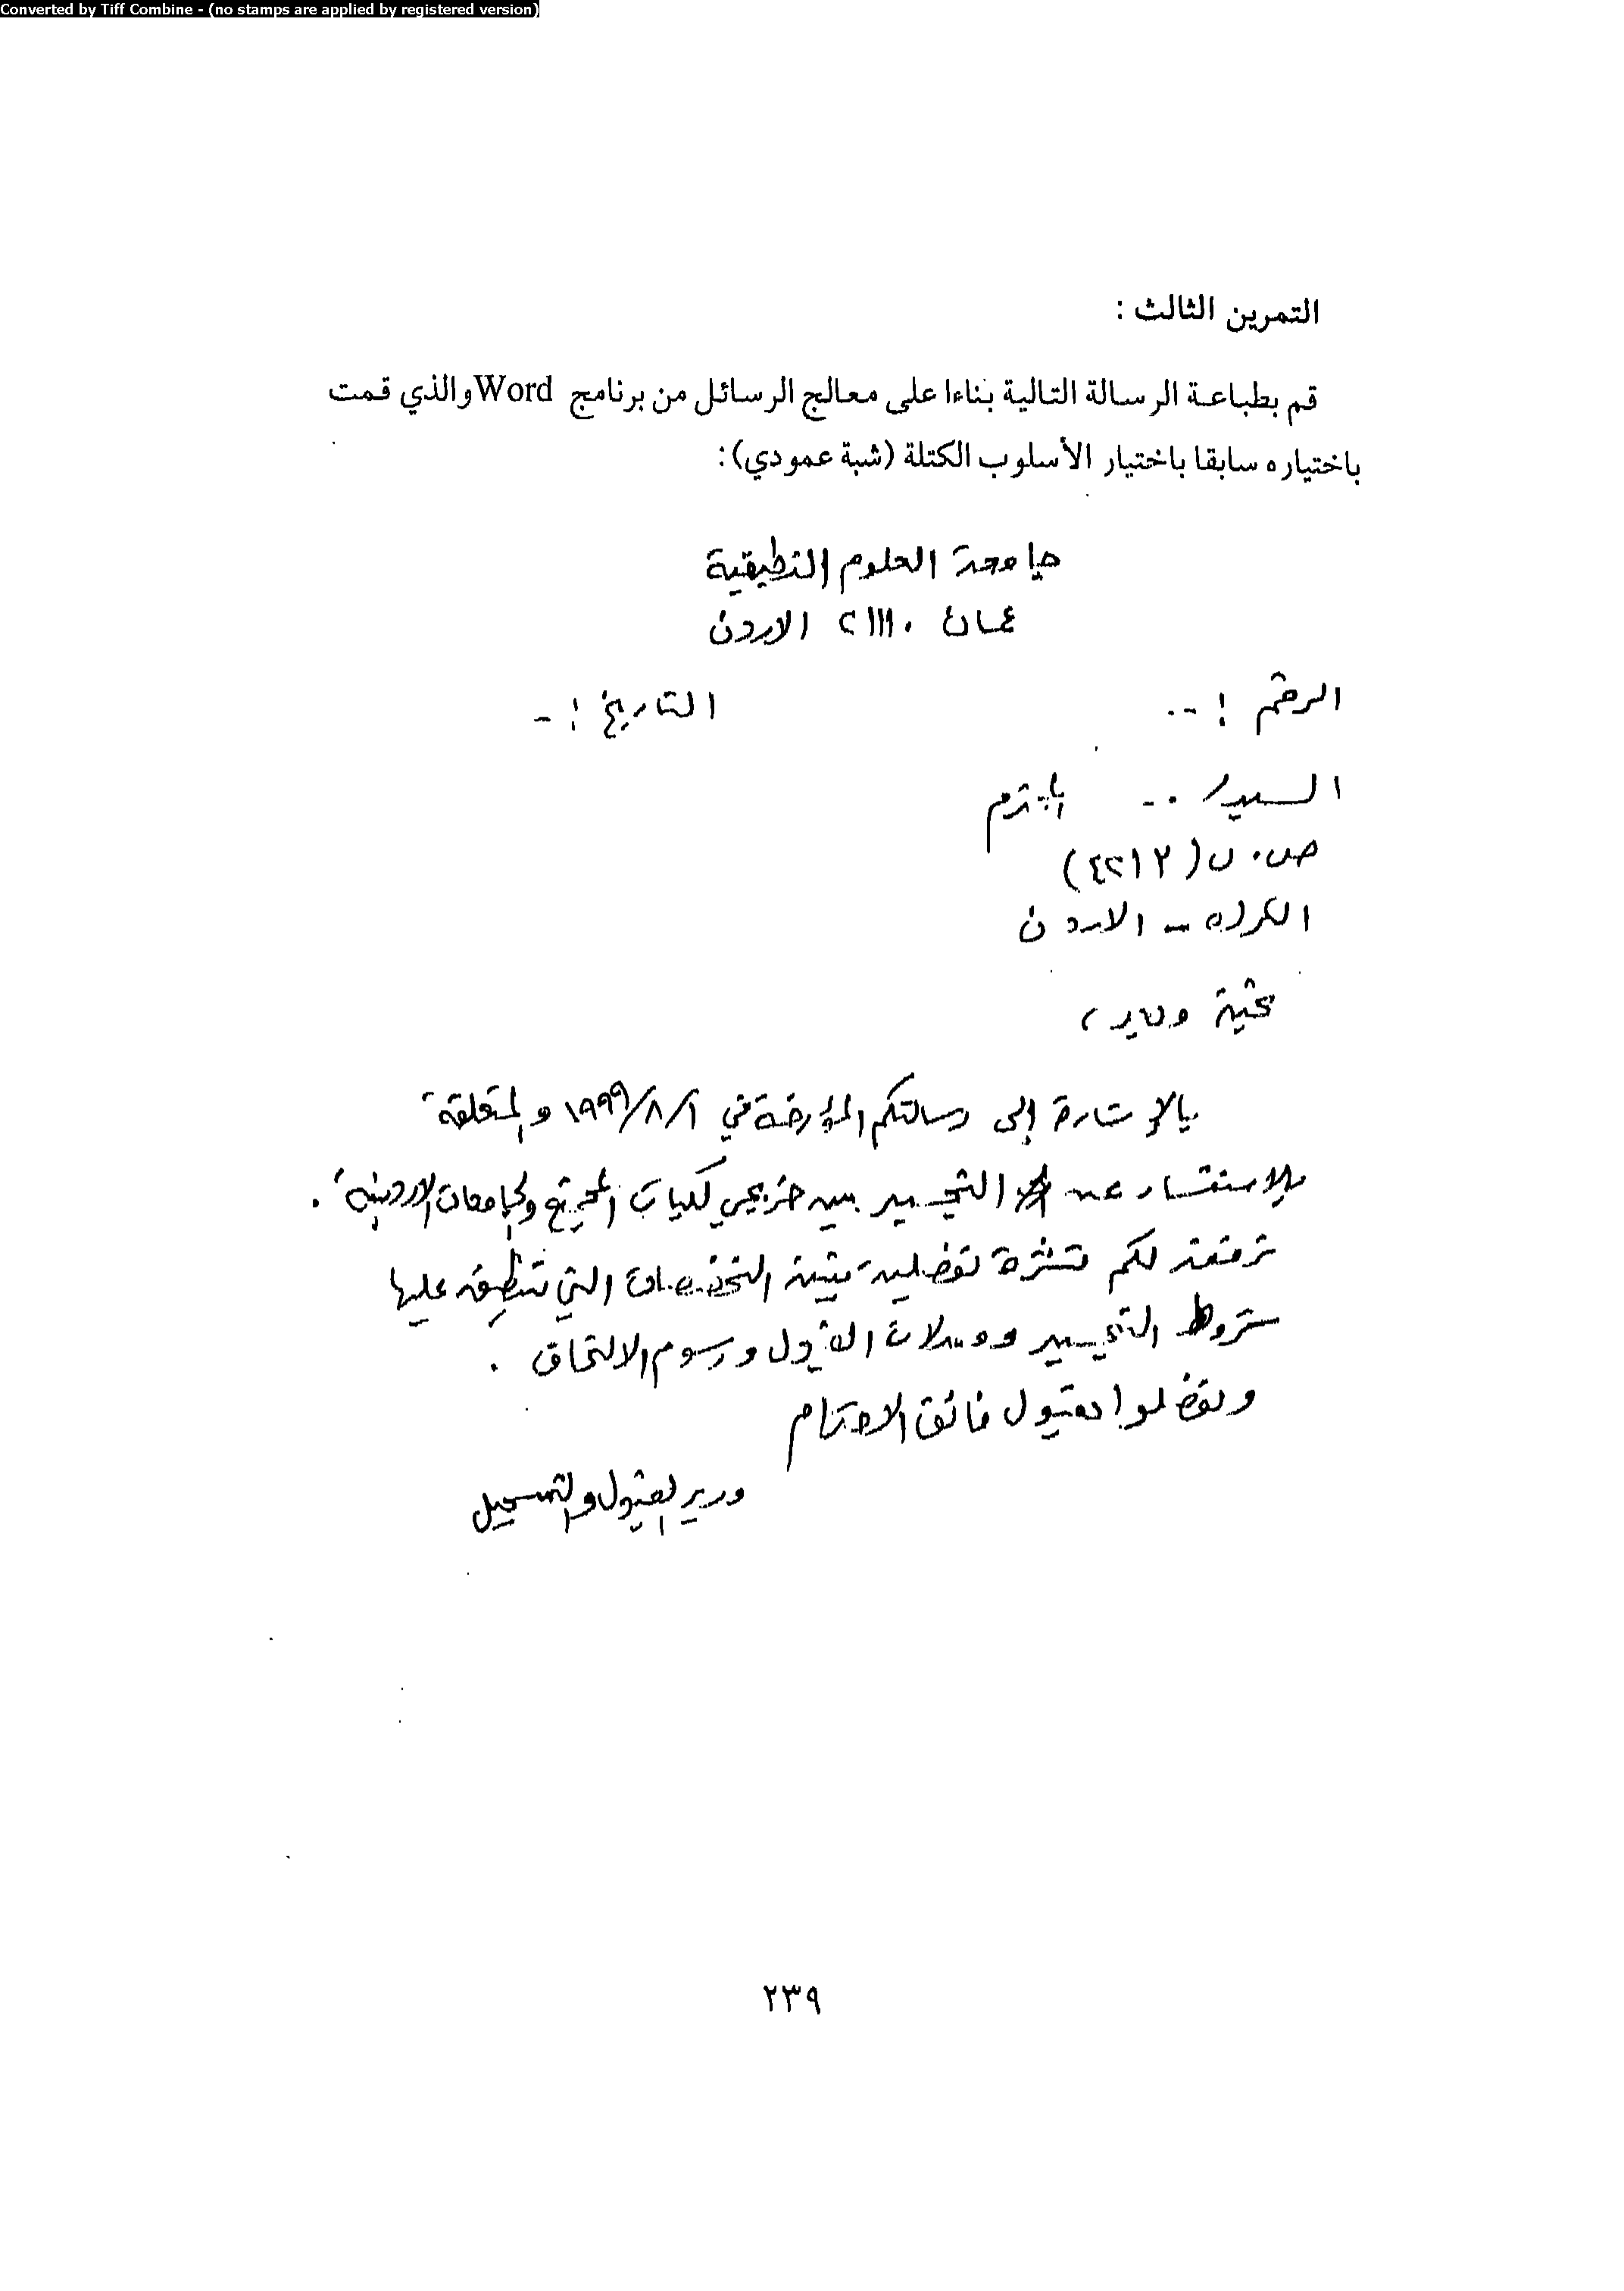 Converted by Tiff Combine - (no stamps are applied by registered version)
التمرين الثالث :
قم بطباعة الرسالة التالية بناءا على معالج الرسائل من برنامج Word والذي قمت
باختياره سابقا باختيار الأسلوب الكتلة (شبة عمودي):
جامعة العلوم التطبيقية
عمان ٢١١١٠ الاردن
الرقم :-. التاريخ :-
السيد/ .-- المحترم
ص.ب (٤٢١٢)
الكرك - الاردن
تحية وبعد ،
بالإشارة إلى رسالتكم المؤرخة في ١٩٩٩/٨/١ والمتعلقة
بالاستفسار عن التجسير بين خريجي كليات المجتمع والجامعات الاردنية .
نرفق لكم نشرة تفصيلية التخصصات التي تنطبق عليها
شروط التجسير ومعدلات القبول ورسوم الالتحاق .
وتفضلوا بقبول فائق الاحترام
مدير القبول والتسجيل
٢٣٩